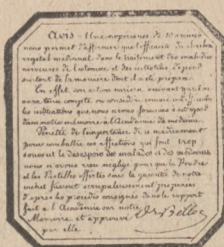 AVIS - Une expérience de 10 années
nous permet d'affirmer que l'efficacité du charbon
végétal médicinal dans le traitement des maladies
nerveuses de l'estomac et des intestins, dépend
surtout de la manière dont il a été préparé.
En effet, son action varie, suivant qu'on
aura tenu compte, ou non, des
indications que nous avons fournies à ce sujet
dans notre mémoire à l'Académie de médecine.
Pénétré de l'importance de ce médicament
pour combattre ces affections qui font trop
souvent le désespoir des malades et des médecins
nous n'avons rien négligé pour que la Poudre
et les Pastilles offertes sous la garantie de notre
cachet fussent scrupuleusement préparées
d'après les procédés consignés dans le rapport
fait à l'Académie sur notre
Mémoire et approuvé
par elle.
Dr Belloc